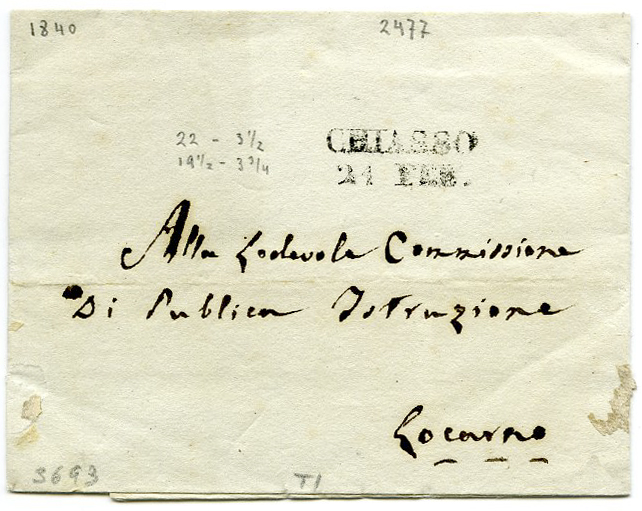 1840 2477
22 - 3 1/2
19 1/2 - 3 3/4
CHIASSO
21 FEB.
Alla Lodevole Commissione
Di Publica Istruzione
Locarno
S693 TI